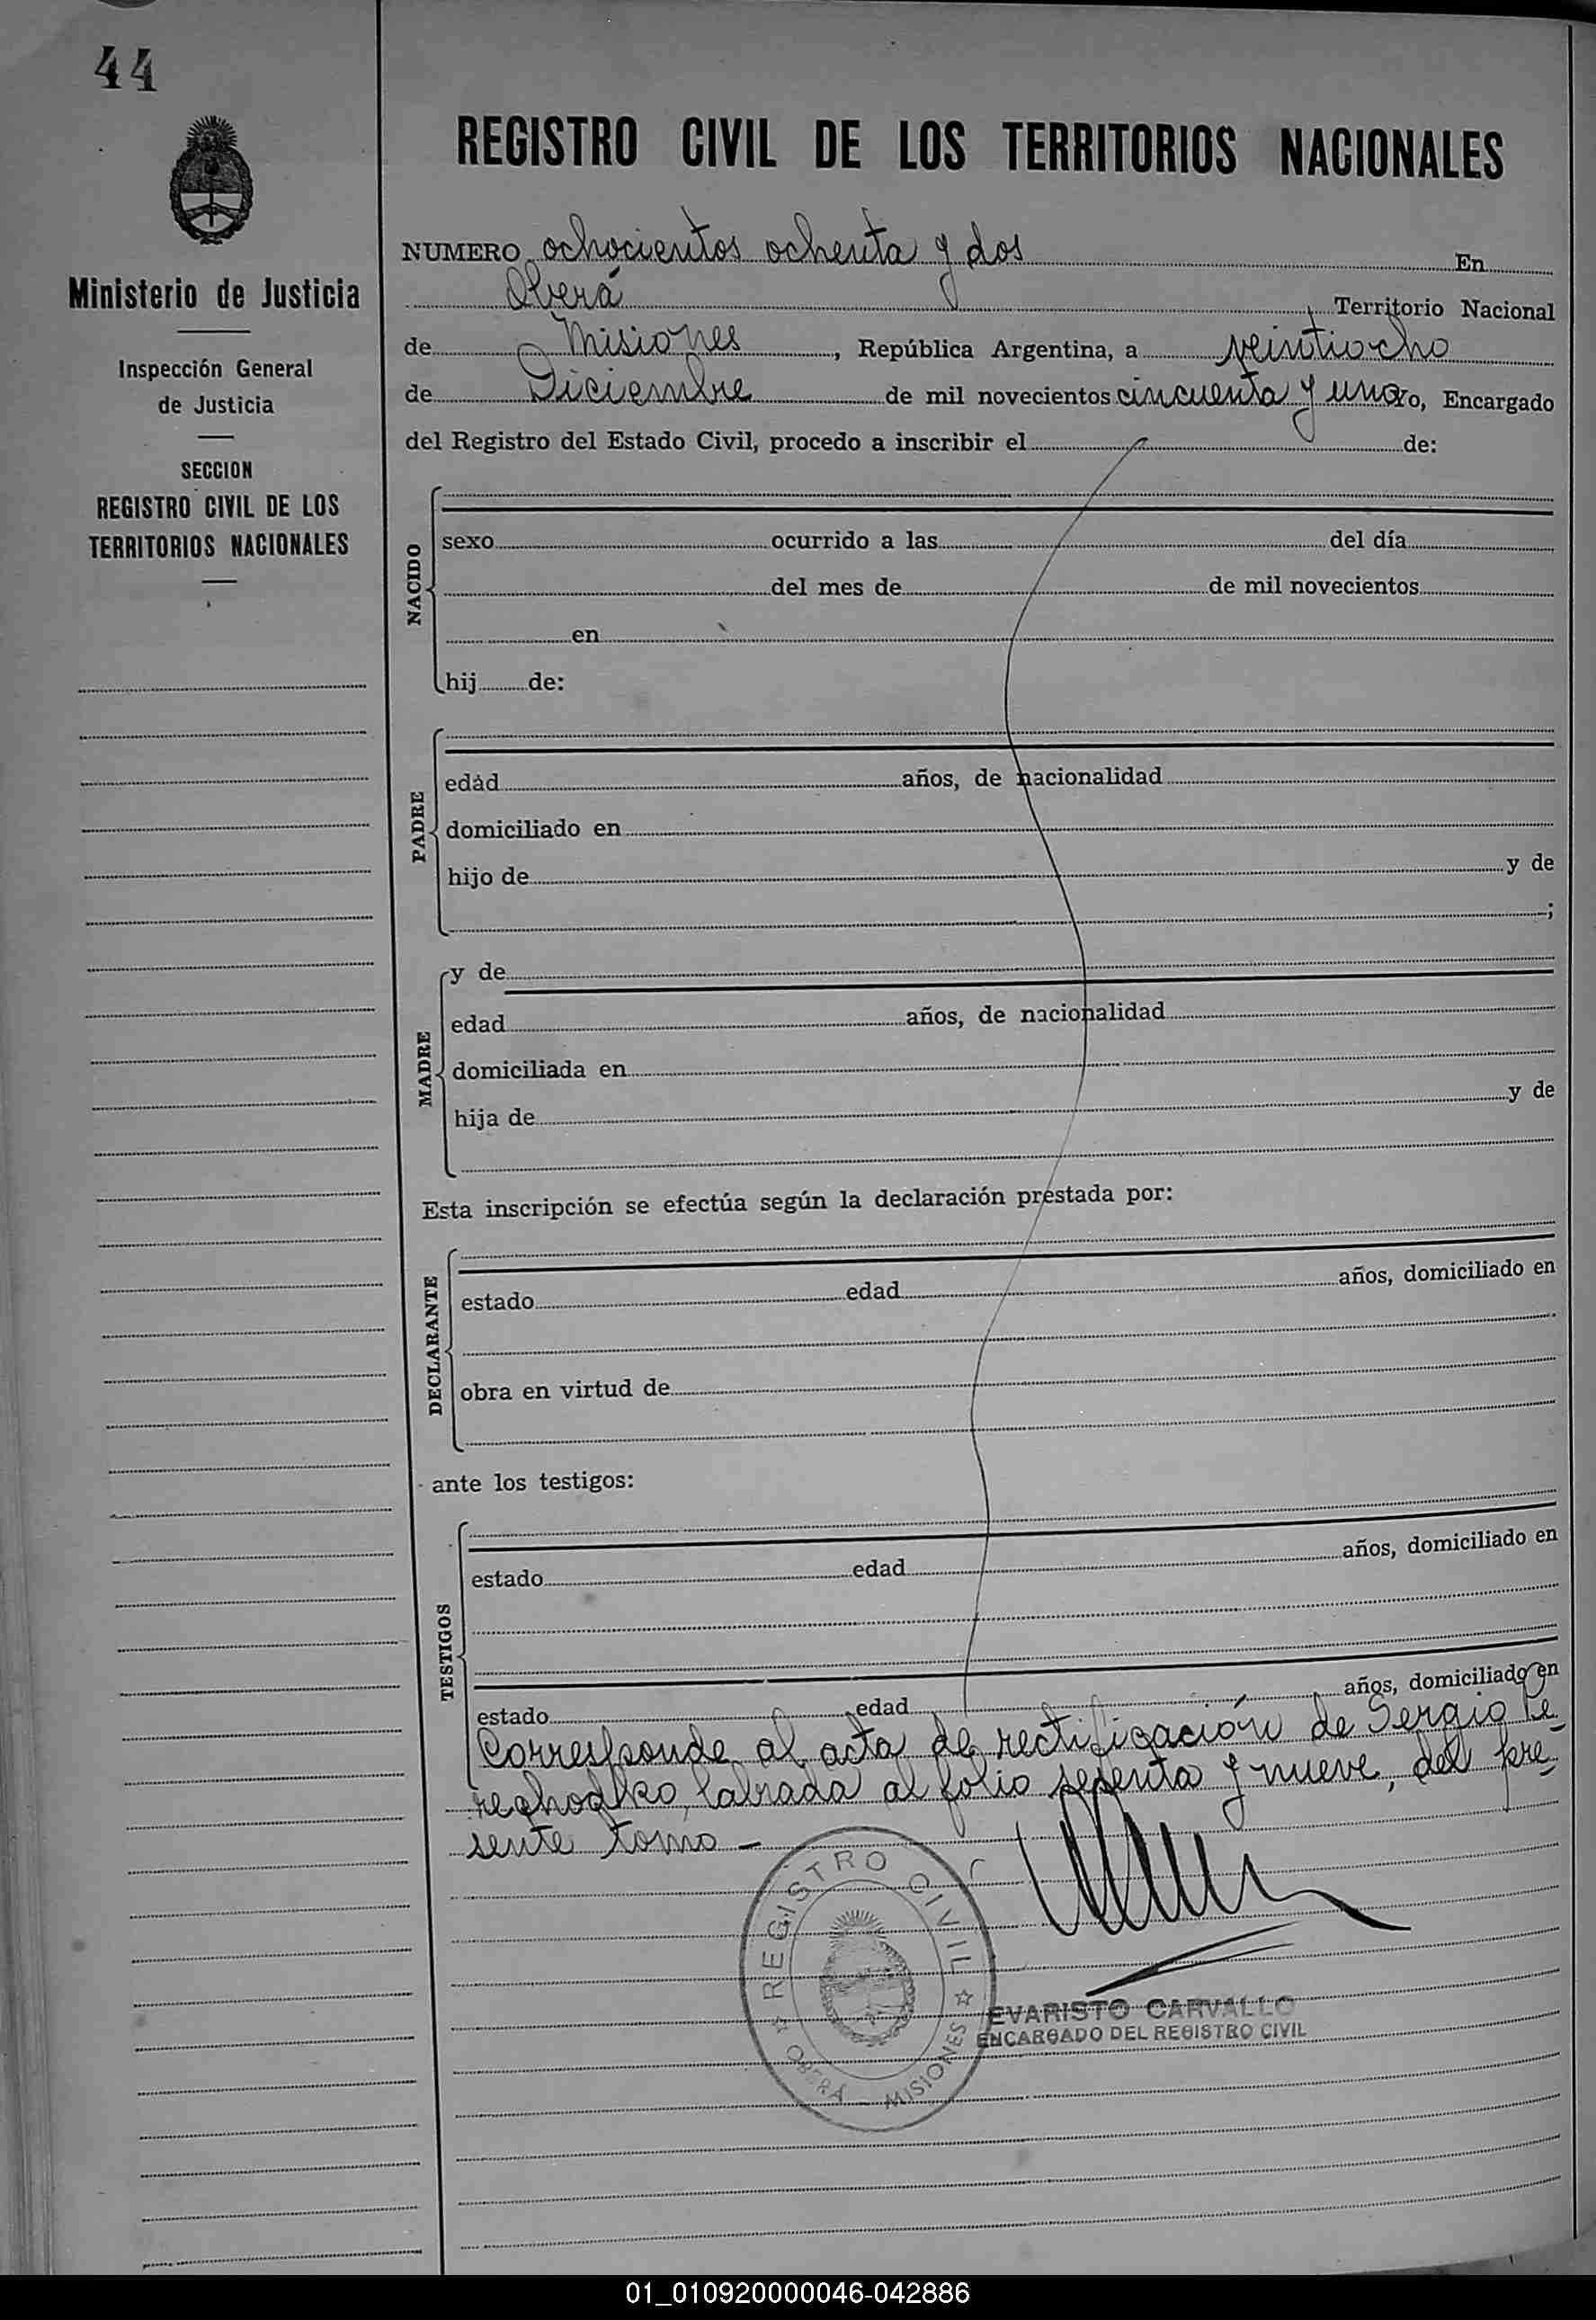 44
Ministerio de Justicia
Inspección General
de Justicia
SECCION
REGISTRO CIVIL DE LOS
TERRITORIOS NACIONALES
REGISTRO CIVIL DE LOS TERRITORIOS NACIONALES
NUMERO ochocientos ochenta y dos En
Oberá Territorio Nacional
de Misiones, República Argentina, a veintiocho
de Diciembre de mil novecientos cincuenta y uno yo, Encargado
del Registro del Estado Civil, procedo a inscribir el de:
NACIDO
sexo ocurrido a las del día
del mes de de mil novecientos
en
hij de:
PADRE
edad años, de nacionalidad
domiciliado en
hijo de y de
;
MADRE
y de
edad años, de nacionalidad
domiciliada en
hija de y de
Esta inscripción se efectúa según la declaración prestada por:
DECLARANTE
estado edad años, domiciliado en
obra en virtud de
ante los testigos:
TESTIGOS
estado edad años, domiciliado en
estado edad años, domiciliado en
Corresponde al acta de rectificación de Sergio Pe
labrada al folio y nueve, del pre-
sente tomo -
REGISTRO CIVIL
OBERA - MISIONES
EVARISTO CARVALLO
ENCARGADO DEL REGISTRO CIVIL
01_010920000046-042886